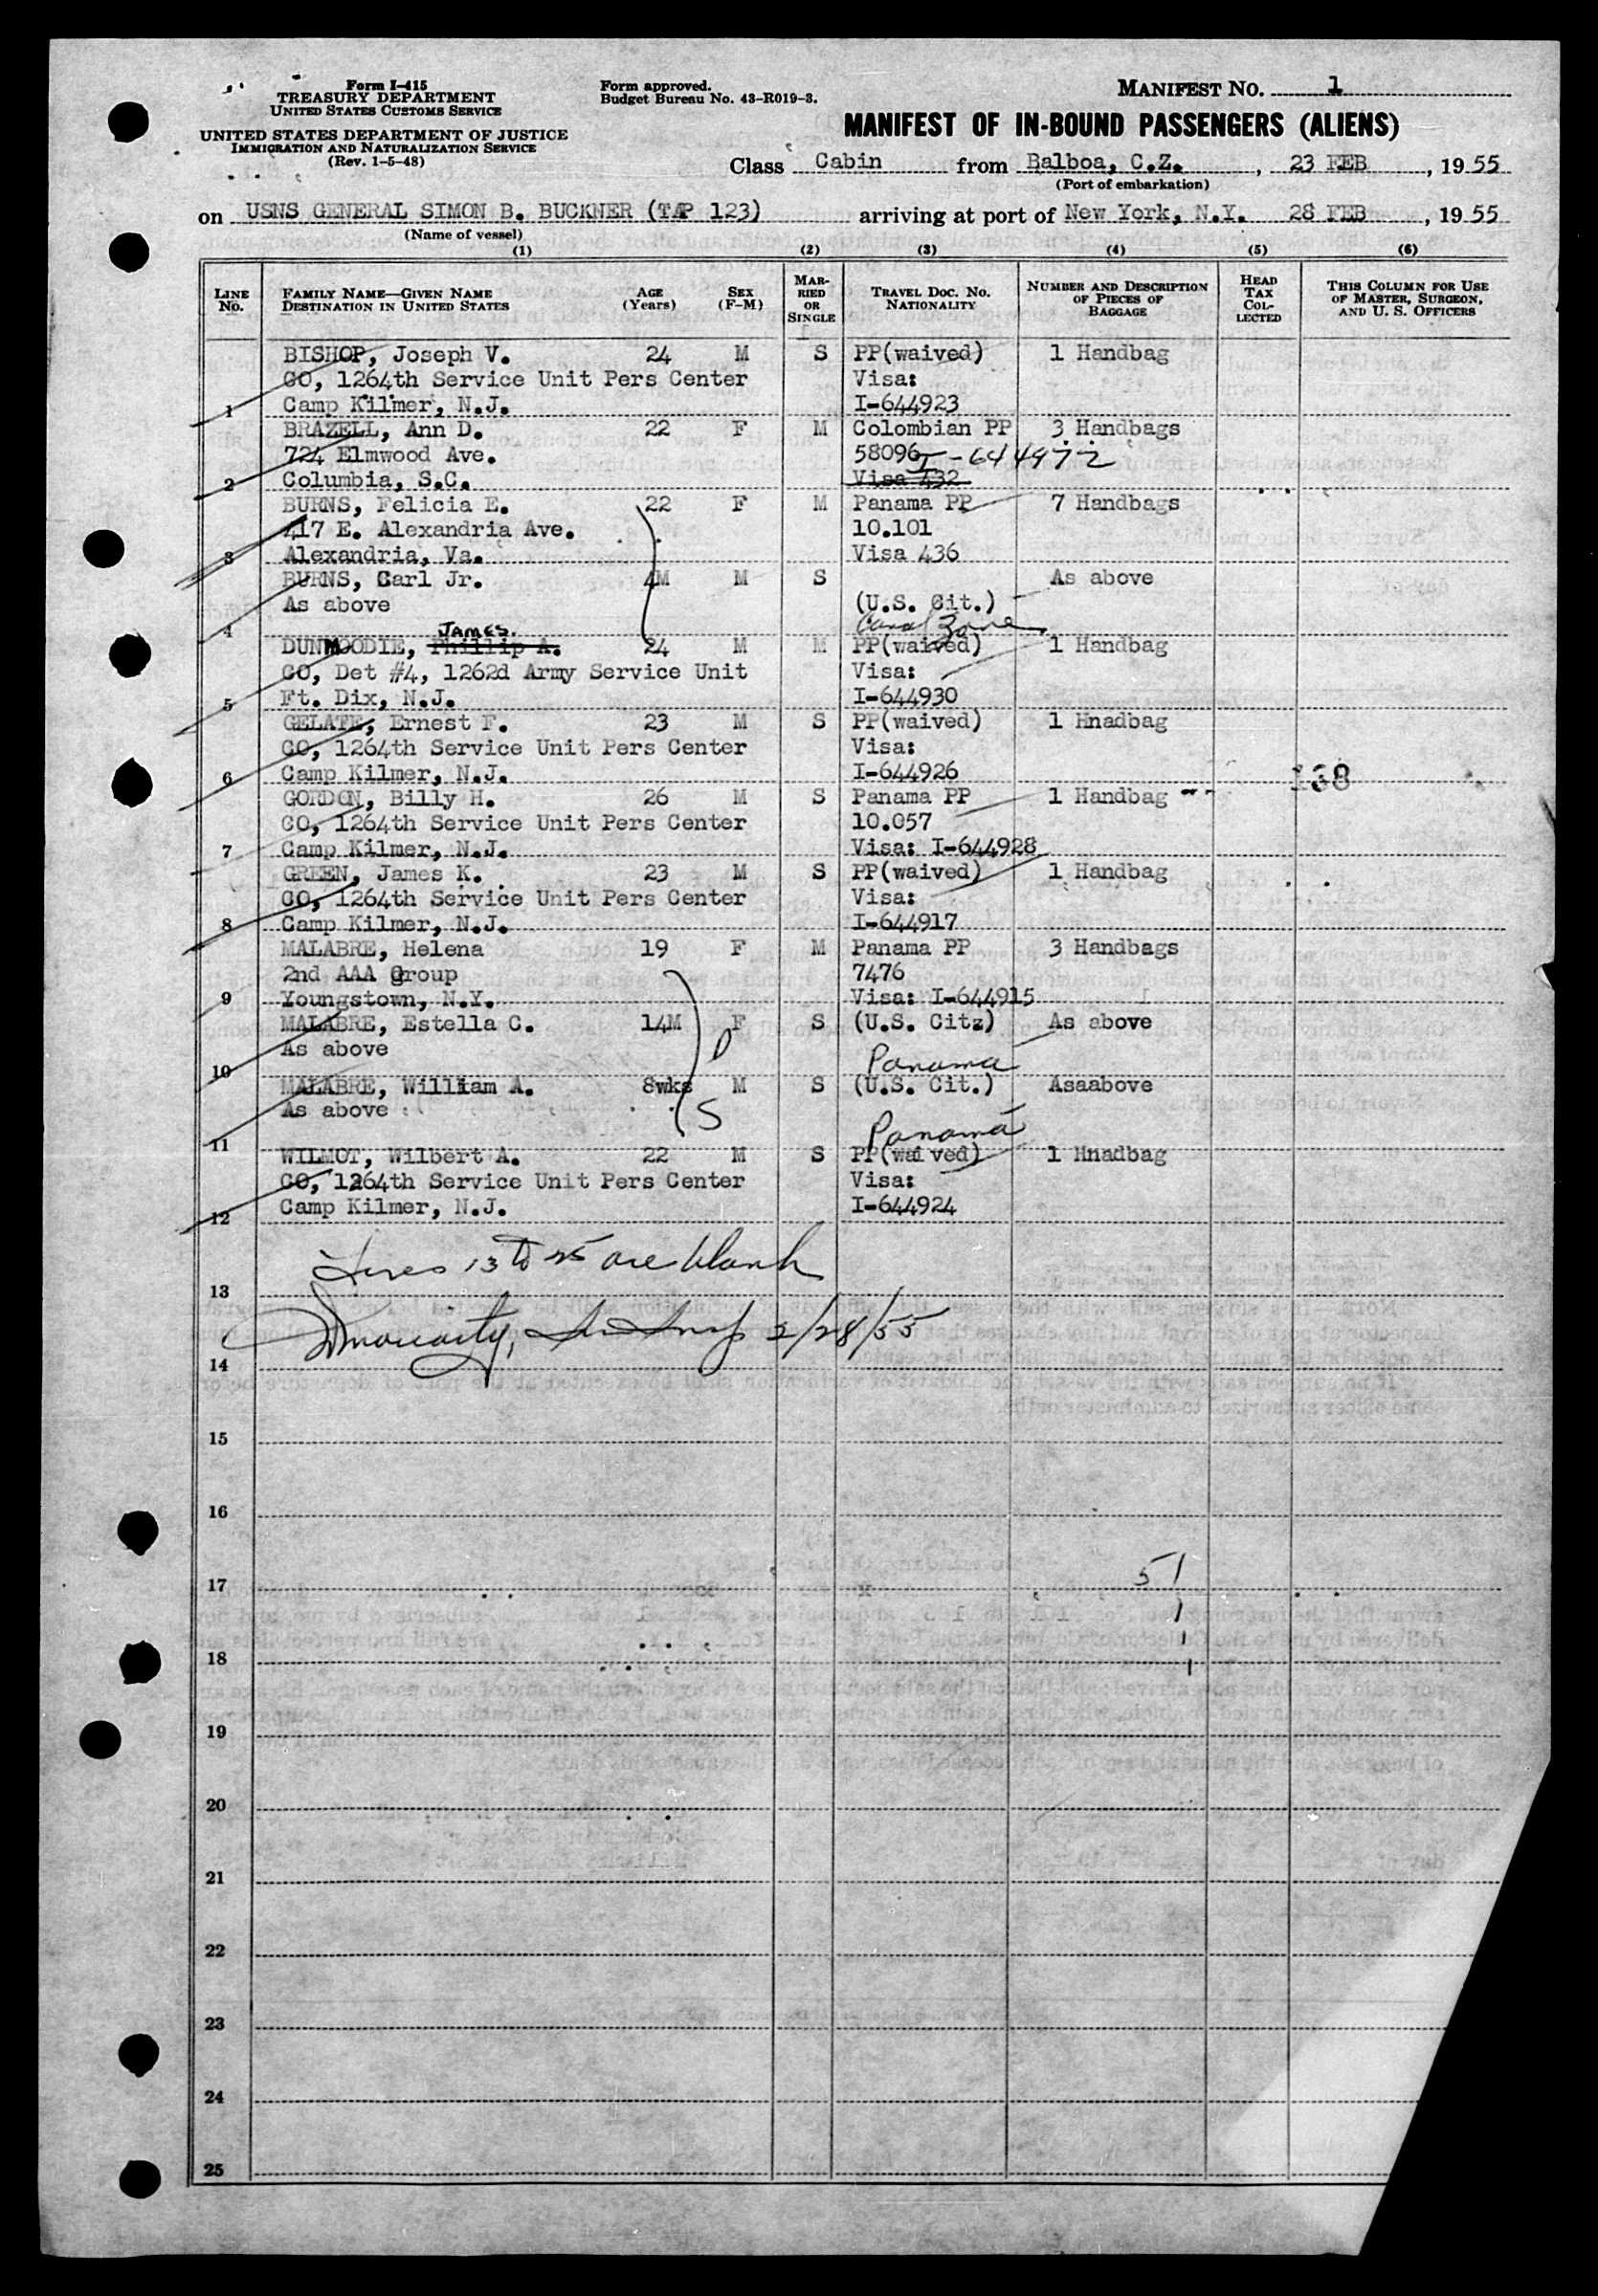 Form I-415
TREASURY DEPARTMENT
UNITED STATES CUSTOMS SERVICE
UNITED STATES DEPARTMENT OF JUSTICE
IMMIGRATION AND NATURALIZATION SERVICE
(Rev. 1-5-48)
Form approved.
Budget Bureau No. 43-R019-3.
MANIFEST NO. 1
MANIFEST OF IN-BOUND PASSENGERS (ALIENS)
Class Cabin from Balboa, C.Z., 23 FEB, 1955
(Port of embarkation)
on USNS GENERAL SIMON B. BUCKNER (TAP 123) arriving at port of New York, N.Y. 28 FEB, 1955
(Name of vessel)
(1) (2) (3) (4) (5) (6)
LINE NO. FAMILY NAME—GIVEN NAME DESTINATION IN UNITED STATES AGE (Years) SEX (F-M) MARRIED OR SINGLE TRAVEL DOC. NO. NATIONALITY NUMBER AND DESCRIPTION OF PIECES OF BAGGAGE HEAD TAX COLLECTED THIS COLUMN FOR USE OF MASTER, SURGEON, AND U. S. OFFICERS
BISHOP, Joseph V. 24 M S PP(waived) 1 Handbag
CO, 1264th Service Unit Pers Center Visa:
1 Camp Kilmer, N.J. I-644923
BRAZELL, Ann D. 22 F M Colombian PP 3 Handbags
724 Elmwood Ave. 58096 I-644972
2 Columbia, S.C. Visa 432
BURNS, Felicia E. 22 F M Panama PP 7 Handbags
417 E. Alexandria Ave. 10.101
3 Alexandria, Va. Visa 436
BURNS, Carl Jr. 4M M S As above
As above (U.S. Cit.)
4 Canal Zone
JAMES.
DUNMOODIE, Phillip A. 24 M M PP(waived) 1 Handbag
CO, Det #4, 1262d Army Service Unit Visa:
5 Ft. Dix, N.J. I-644930
GELATE, Ernest F. 23 M S PP(waived) 1 Hnadbag
CO, 1264th Service Unit Pers Center Visa:
6 Camp Kilmer, N.J. I-644926 138
GORDON, Billy H. 26 M S Panama PP 1 Handbag
CO, 1264th Service Unit Pers Center 10.057
7 Camp Kilmer, N.J. Visa: I-644928
GREEN, James K. 23 M S PP(waived) 1 Handbag
CO, 1264th Service Unit Pers Center Visa:
8 Camp Kilmer, N.J. I-644917
MALABRE, Helena 19 F M Panama PP 3 Handbags
2nd AAA Group 7476
9 Youngstown, N.Y. Visa: I-644915
MALABRE, Estella C. 14M F S (U.S. Citz) As above
As above
10 Panama
MALABRE, William A. 8wks M S (U.S. Cit.) Asaabove
As above S
11 Panama
WILMOT, Wilbert A. 22 M S PP(waived) 1 Hnadbag
CO, 1264th Service Unit Pers Center Visa:
12 Camp Kilmer, N.J. I-644924
Lines 13 to 25 are blank
13
2/28/55
14
15
16
51
17
1
1
18 1
19
20
21
22
23
24
25